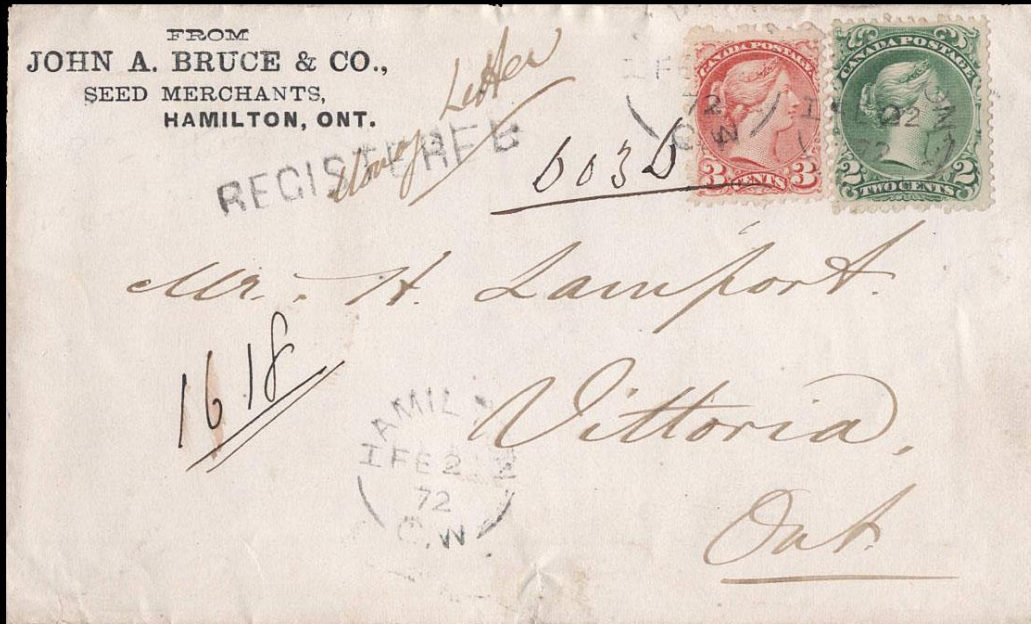 FROM
JOHN A. BRUCE & CO.,
SEED MERCHANTS,
HAMILTON, ONT.
Money Letter
REGISTERED
603
CANADA POSTAGE
3 CENTS 3
CANADA POSTAGE
2 TWO CENTS 2
72
C.W
Mr. H. Lamport.
1618
Vittoria,
Ont.
HAMIL
I FE 2
72
C.W